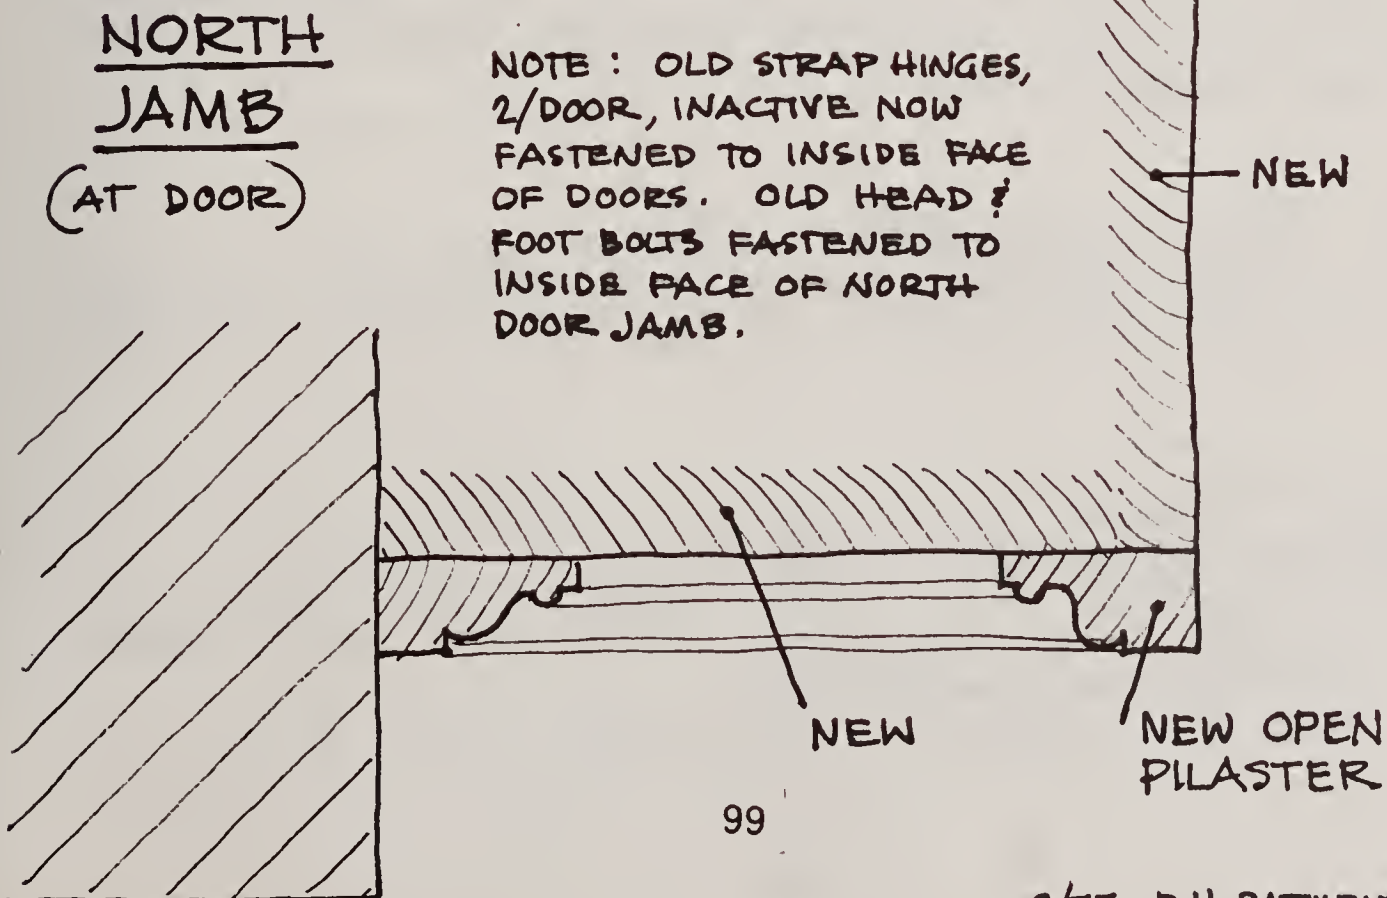 NORTH
JAMB
(AT DOOR)
NOTE : OLD STRAP HINGES,
2/DOOR, INACTIVE NOW
FASTENED TO INSIDE FACE
OF DOORS. OLD HEAD &
FOOT BOLTS FASTENED TO
INSIDE FACE OF NORTH
DOOR JAMB.
NEW
NEW
NEW OPEN
PILASTER
99